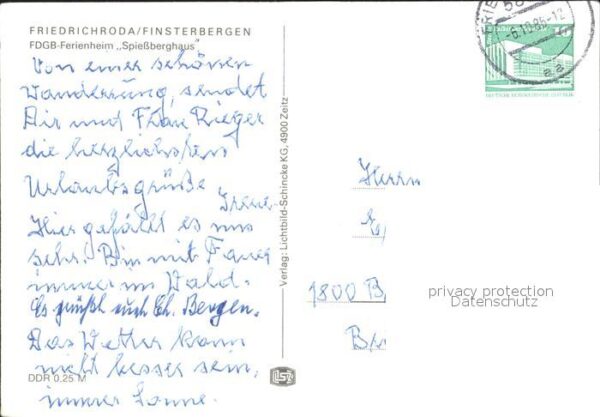 FRIEDRICHRODA/FINSTERBERGEN
FDGB-Ferienheim „Spießberghaus"
Von einer schönen
Wanderung, sendet
Dir und Frau Rieger
die herzlichsten
Urlaubsgrüße
Irene
Hier gefällt es uns
sehr. Bin mit
immer im Wald.
Es grüßt auch Eh. Bergen.
Das Wetter kann
nicht besser sein,
immer Sonne.
DDR 0,25 M
Verlag: Lichtbild-Schincke KG, 4900 Zeitz
-6.10.86-12
aa
Herrn
1800 B
B
privacy protection
Datenschutz